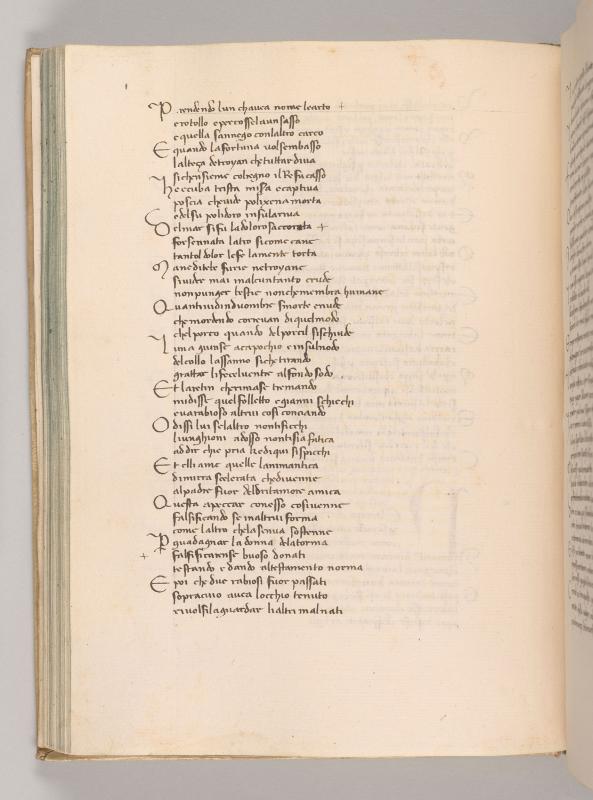 Prendendo lun chavea nome learco +
e rotollo e percossel aun sasso
e quella sannego conlaltro carco
E quando la fortuna volse in basso
lalteça detroyan chetuttardiva
si chensieme colregno il Re fu casso
hecuba trista misa e captiva
poscia chevide polixena morta
E delsu polidoro insulariva
Delmar si fu ladolorosaccorata +
forsennata latro sicome cane
tantol dolor lefe lamente torta
Mane ditebe furie netroyane
sivider mai inalcuntanto crude
nonpunger bestie nonchemembra humane
Quantiividinduombre smorte enude
chemordendo correvan diquelmodo
chelporco quando delporcil sischiude
luna giunse acapochio e insulnodo
delcollo lassanno sichetirando
grattar lifeceluentre alfondo sodo
Et laretin cherimase tremando
midisse quel folletto egianni schicchi
e va rabioso altrui cosi conciando
O dissi lui selaltro nontificchi
lidenti adosso nontisia fatica
addir chie pria chediqui sispicchi
Et elli ame quelle lanimantica
dimirra scelerata chedivenne
alpadre fuor deldrittamore amica
Questa apeccar conesso cosivenne
falsificando se inaltrui forma
come laltro chelasenva sostenne
P guadagnar la donna delatorma
+ falsificarinse buoso donati
testando e dando altestamento norma
E poi che due rabiosi fuor passati
sopracuio avea locchio tenuto
rivolsilaguardar lialtri malnati